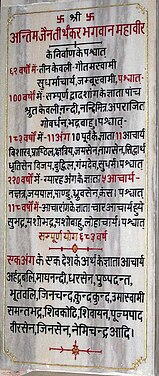 卐 श्री 卐
अन्तिम जैन तीर्थंकर भगवान महावीर
के निर्वाण के पश्चात
६२ वर्षों में-तीन केवली-गौतमस्वामी
सुधर्माचार्य, जम्बूस्वामी, पश्चात-
100 वर्षों में- सम्पूर्ण द्वादशांग के ज्ञाता पांच
श्रुत केवली, नन्दी, नन्दिमित्र, अपराजित
गोबर्धन, भद्रबाहु। पश्चात-
१८३ वर्षों में-११ अंग 10 पूर्व के ज्ञाता 11 आचार्य
विशारव, प्रोष्ठिल, क्षत्रिय, जयसेन, नागसेन, सिद्धार्थ
धृतिसेन, विजय, बुद्धिल, गंगदेव, सुधर्म। पश्चात-
२२० वर्षों में- ग्यारह अंग के ज्ञाता ५ आचार्य-
नक्षत्र, जयपाल, पाण्डु, ध्रुवसेन, कंस। पश्चात-
११८ वर्षों में-आचारांग के ज्ञाता चार आचार्य हुये
सुभद्र, यशोभद्र, यशोबाहु, लोहाचार्य। पश्चात-
सम्पूर्ण योग ६८३ वर्ष
एक अंग के एक देश के अर्थ के ज्ञाता आचार्य
अर्हद्वलि, माघनन्दी, धरसेन, पुष्पदन्त,
भूतवलि, जिनचन्द्र, कुन्दकुन्द, उमास्वामी
समन्तभद्र, शिवकोटि, शिवायन, पूज्यपाद
वीरसेन, जिनसेन, नेमिचन्द्र आदि।